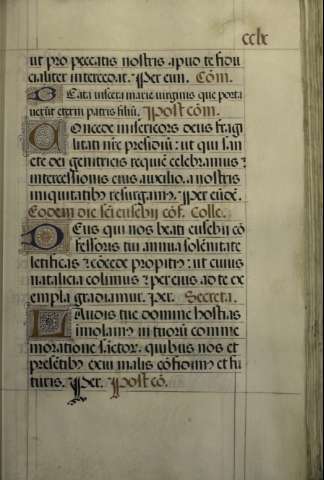 cclx
ut pro peccatis nostris apud te fidu
cialiter intercedat. Per eun. Cōm.
Beata viscera marie virginis que porta
uerūt eterni patris filiū. Post cōm.
Concede misericors deus fragi
litati nr̄e presidiū: ut qui san
cte dei genitricis requiē celebramus:
intercessionis eius auxilio, a nostris
iniquitatib resurgam. Per eūdē.
Eodem die sc̄i eusebij cōf. Colle.
Deus qui nos beati eusebij cō
fessoris tui annua solēnitate
letificas: cōcede propiti: ut cuius
natalicia colimus: per eius ad te ex
empla gradiamur. Per. Secreta.
Laudis tue domine hostias
imolam in tuorū comme
moratione sāctor. quibus nos et
presētib exui malis cōfidim et fu
turis. Per. Post cō.